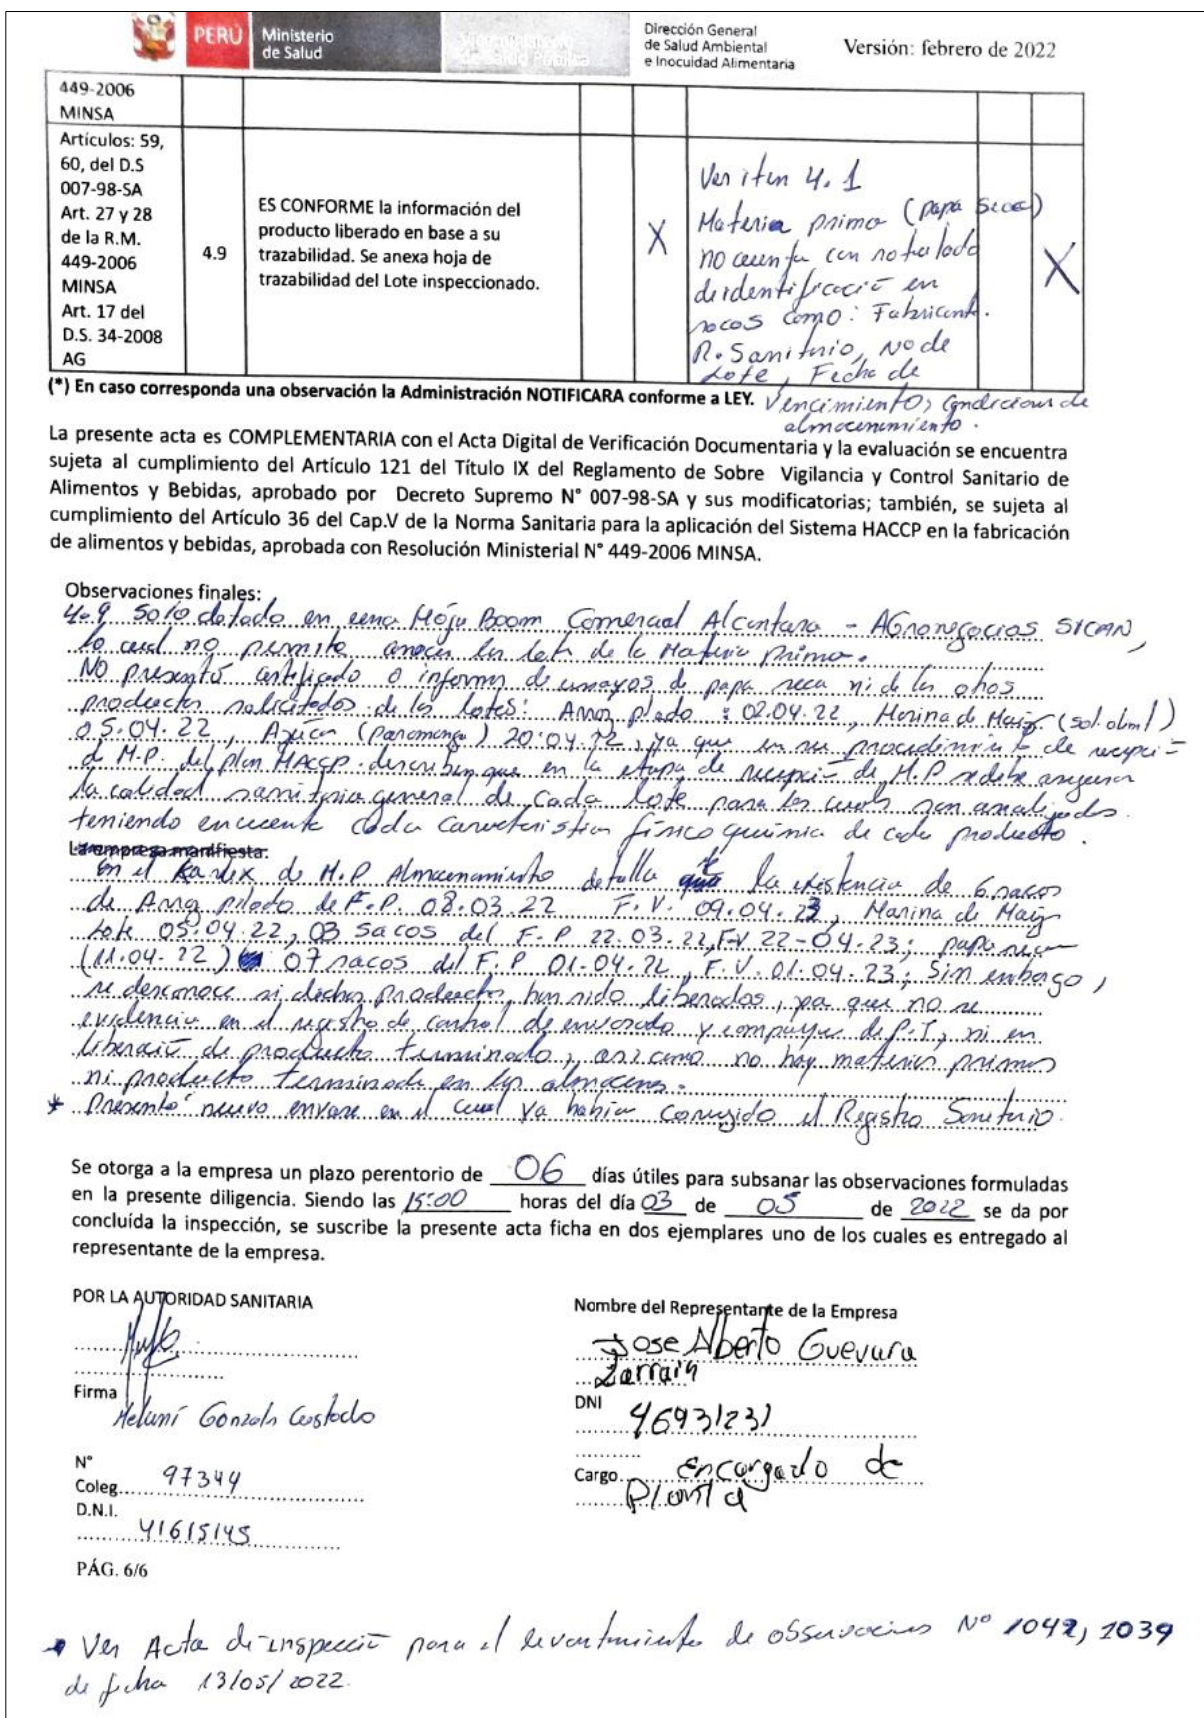 PERÚ
Ministerio
de Salud
Dirección General
de Salud Ambiental
e Inocuidad Alimentaria
Versión: febrero de 2022
449-2006
MINSA
Artículos: 59,
60, del D.S
007-98-SA
Art. 27 y 28
de la R.M.
449-2006
MINSA
Art. 17 del
D.S. 34-2008
AG
4.9
ES CONFORME la información del
producto liberado en base a su
trazabilidad. Se anexa hoja de
trazabilidad del Lote inspeccionado.
X
Ver item 4.1
Materia prima (papa seca)
no cuenta con rotulado
de identificació en
sacos como: Fabricante.
R. Sanitario, No de
Lote, Fecha de
Vencimiento, condiciones de
almacenamiento.
X
(*) En caso corresponda una observación la Administración NOTIFICARA conforme a LEY.
La presente acta es COMPLEMENTARIA con el Acta Digital de Verificación Documentaria y la evaluación se encuentra
sujeta al cumplimiento del Artículo 121 del Título IX del Reglamento de Sobre Vigilancia y Control Sanitario de
Alimentos y Bebidas, aprobado por Decreto Supremo N° 007-98-SA y sus modificatorias; también, se sujeta al
cumplimiento del Artículo 36 del Cap.V de la Norma Sanitaria para la aplicación del Sistema HACCP en la fabricación
de alimentos y bebidas, aprobada con Resolución Ministerial N° 449-2006 MINSA.
Observaciones finales:
4.9 Solo en una Comercial Alcantara - Agronegocios SICAN,
lo cual no permite conocer los lote de la Materia prima.
NO presentó certificado o informes de ensayos de papa seca ni de los otros
productos solicitados de los lotes: Arroz pilado: 02.04.22, Harina de Maiz
05.04.22, Azúcar (Paramonga) 20.04.22, ya que en su procedimiento de recepció
de M.P. del plan HACCP describen que en la etapa de recepció de M.P se debe asegurar
la calidad sanitaria general de cada lote para los cuales son analizados
teniendo en cuenta cada caracteristica fisico quimica de cada producto.
La empresa manifiesta:
En el Kardex de M.P Almacenamiento detalla la existencia de 6 sacos
de Arroz pilado de F.P. 08.03.22 F.V. 09.04.23, Harina de Maiz
Lote 05.04.22, 03 Sacos del F.P 22.03.22, F.V 22-04.23; papa seca
(11.04.22) 07 sacos del F.P 01.04.22, F.V. 01.04.23; Sin embargo,
se desconoce si dichos productos han sido liberados, ya que no se
evidencia en el registro de control de envasado y empaque de P.T, ni en
liberació de producto terminado, asi como no hay materias primas
ni producto terminado en los almacenes.
* Presentó nuevo envase en el cual ya habia corregido el Registro Sanitario.
Se otorga a la empresa un plazo perentorio de 06 días útiles para subsanar las observaciones formuladas
en la presente diligencia. Siendo las 15:00 horas del día 03 de 05 de 2022 se da por
concluída la inspección, se suscribe la presente acta ficha en dos ejemplares uno de los cuales es entregado al
representante de la empresa.
POR LA AUTORIDAD SANITARIA
Firma
Meluní Gonzals Custodo
N°
Coleg. 97344
D.N.I.
41615145
Nombre del Representante de la Empresa
Jose Alberto Guevara
Larrain
DNI
46931231
Cargo. encargado de
Planta
PÁG. 6/6
* Ver Acta de inspecció para el levantamiento de observacions N° 1042, 1039
de fecha 13/05/2022.